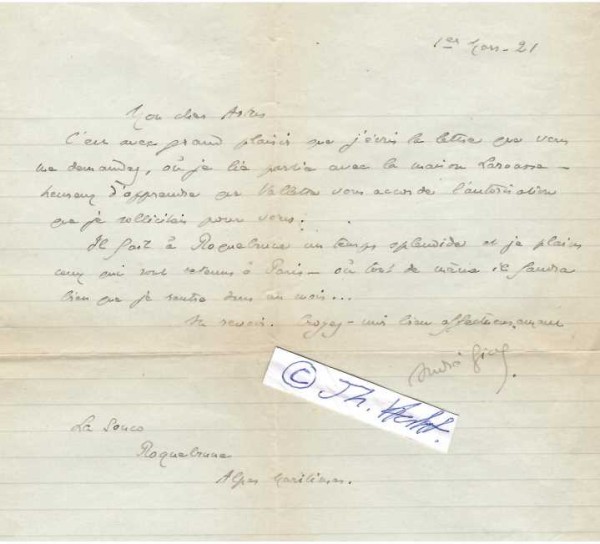 1er Mars - 21
Mon cher
C'est avec grand plaisir que j'écris la lettre que vous
me demandez, où je lie partie avec la maison Larousse -
heureux d'apprendre que Vallette vous accorde l'autorisation
que je sollicitais pour vous.
Il fait à Roquebrune un temps splendide et je plains
ceux qui sont retenus à Paris - où tout de même il faudra
bien que je rentre dans un mois...
Au revoir. Croyez-moi bien affectueusement
André Gide.
© Th.
La Souco
Roquebrune
Alpes Maritimes.